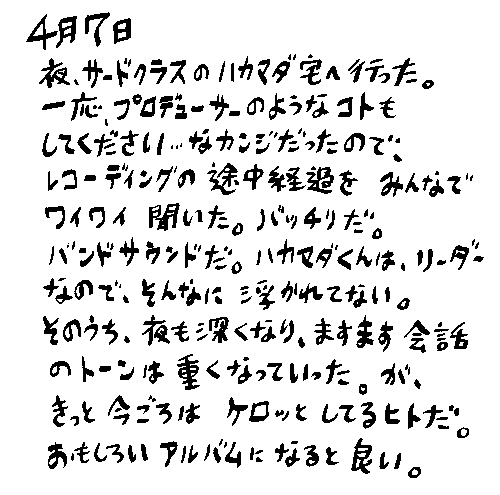 4月7日
夜、サードクラスのハカマダ宅へ行った。
一応、プロデューサーのようなコトも
してください…なカンジだったので、
レコーディングの途中経過を みんなで
ワイワイ 聞いた。バッチリだ。
バンドサウンドだ。ハカマダくんは、リーダー
なので、そんなに浮かれてない。
そのうち、夜も深くなり、ますます会話
のトーンは重くなっていった。が、
きっと今ごろは ケロッとしてるヒトだ。
おもしろい アルバムになると良い。